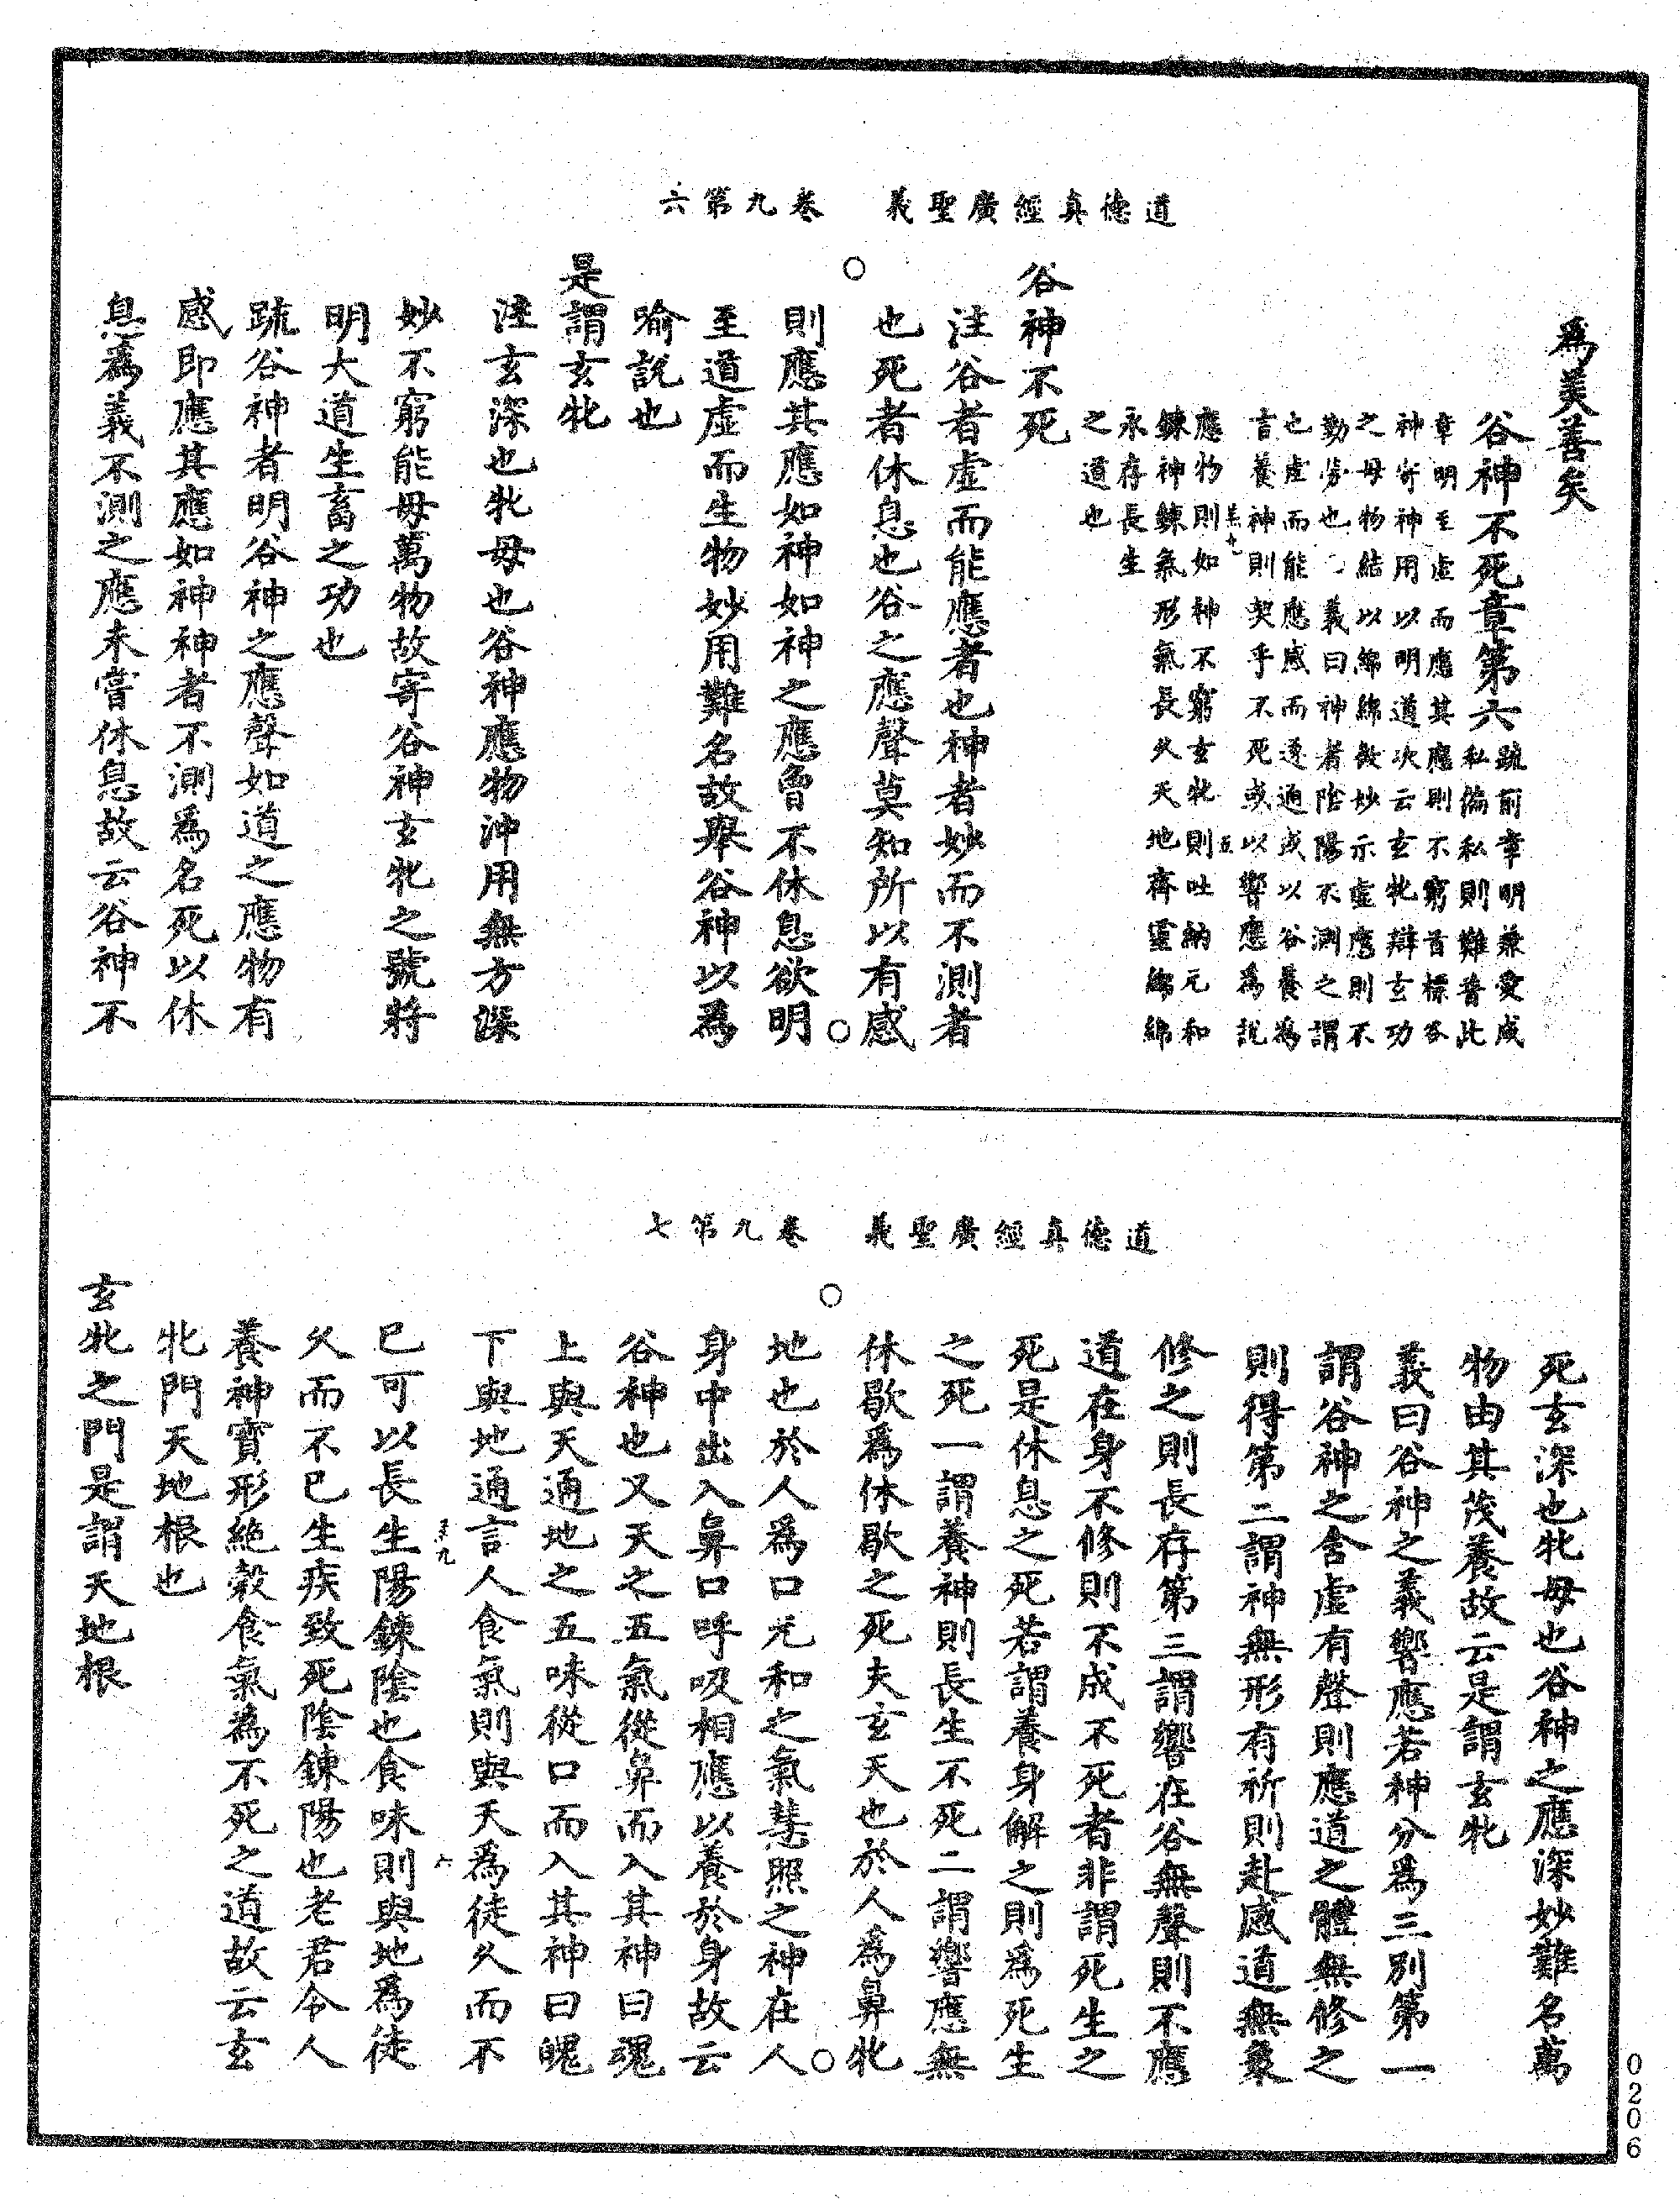 道德真經廣聖義　卷九第六
為美善矣
谷神不死章第六疏前章明兼愛咸
私偏私則難普此
章明至虛而應其應則不窮首標谷
神寄神用以明道次云玄牝辯玄功
之母物結以綿綿微妙示虛應則不
勤勞也　義曰神者陰陽不測之謂
也虛而能應感而遂通或以谷養為
言養神則契乎不死或以響應為說
應物則如神不窮玄牝則吐納元和
鍊神鍊氣形氣長久天地齊靈綿綿
永存長生
之道也
谷神不死
注谷者虛而能應者也神者妙而不測者
也死者休息也谷之應聲莫知所以有感
則應其應如神如神之應曾不休息欲明
至道虛而生物妙用難名故舉谷神以為
喻說也
是謂玄牝
注玄深也牝母也谷神應物沖用無方深
妙不窮能母萬物故寄谷神玄牝之號將
明大道生畜之功也
疏谷神者明谷神之應聲如道之應物有
感即應其應如神神者不測為名死以休
息為義不測之應未嘗休息故云谷神不
道德真經廣聖義　卷九第七
死玄深也牝母也谷神之應深妙難名萬
物由其茂養故云是謂玄牝
義曰谷神之義響應若神分為三別第一
謂谷神之含虛有聲則應道之體無修之
則得第二謂神無形有祈則赴感道無象
修之則長存第三謂響在谷無聲則不應
道在身不修則不成不死者非謂死生之
死是休息之死若謂養身解之則為死生
之死一謂養神則長生不死二謂響應無
休歇為休歇之死夫玄天也於人為鼻牝
地也於人為口元和之氣慧照之神在人
身中出入鼻口呼吸相應以養於身故云
谷神也又天之五氣從鼻而入其神曰魂
上與天通地之五味從口而入其神曰魄
下與地通言人食氣則與天為徒久而不
已可以長生陽鍊陰也食味則與地為徒
久而不已生疾致死陰鍊陽也老君令人
養神寶形絕穀食氣為不死之道故云玄
牝門天地根也
玄牝之門是謂天地根
0206